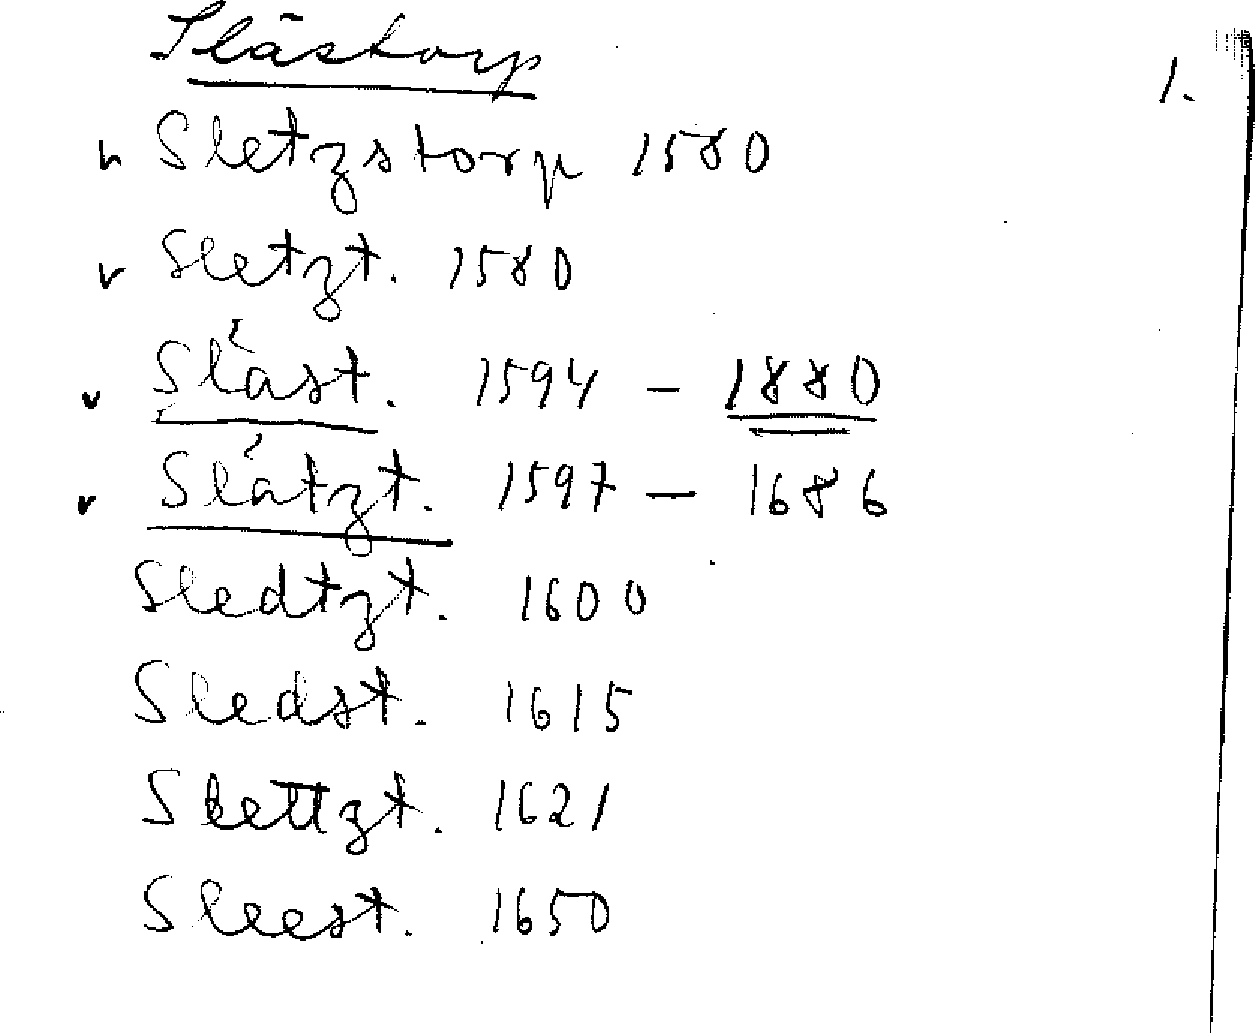 Slästorp
1.
v Sletzstorp 1580
v Sletzt. 1580
v Släst. 1594 – 1880
v Slätzt. 1597 – 1686
Sledtzt. 1600
Sledst. 1615
Slettzt. 1621
Sleest. 1650